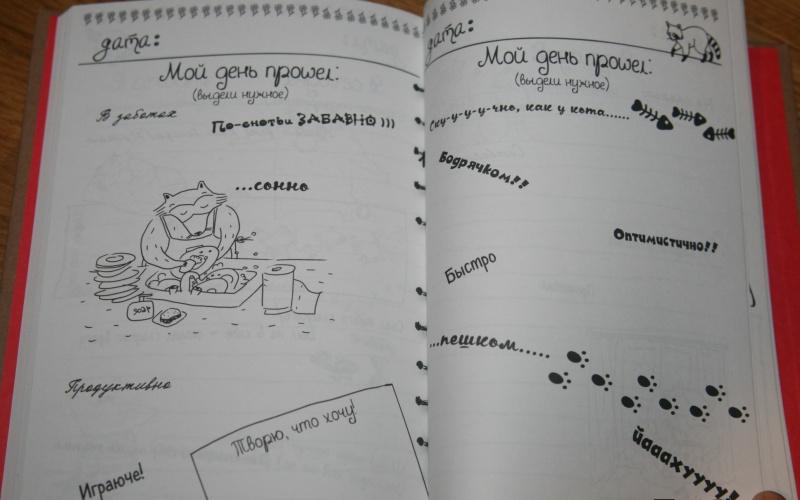 дата:
Мой день прошел:
(выдели нужное)
В заботах
По-енотьи ЗАБАВНО )))
...сонно
SOAP
Продуктивно
Творю, что хочу!
Играюче!
дата:
Мой день прошел:
(выдели нужное)
Ску-у-у-у-чно, как у кота......
Бодрячком!!
Оптимистично!!
Быстро
...пешком.....
йааахуууу!